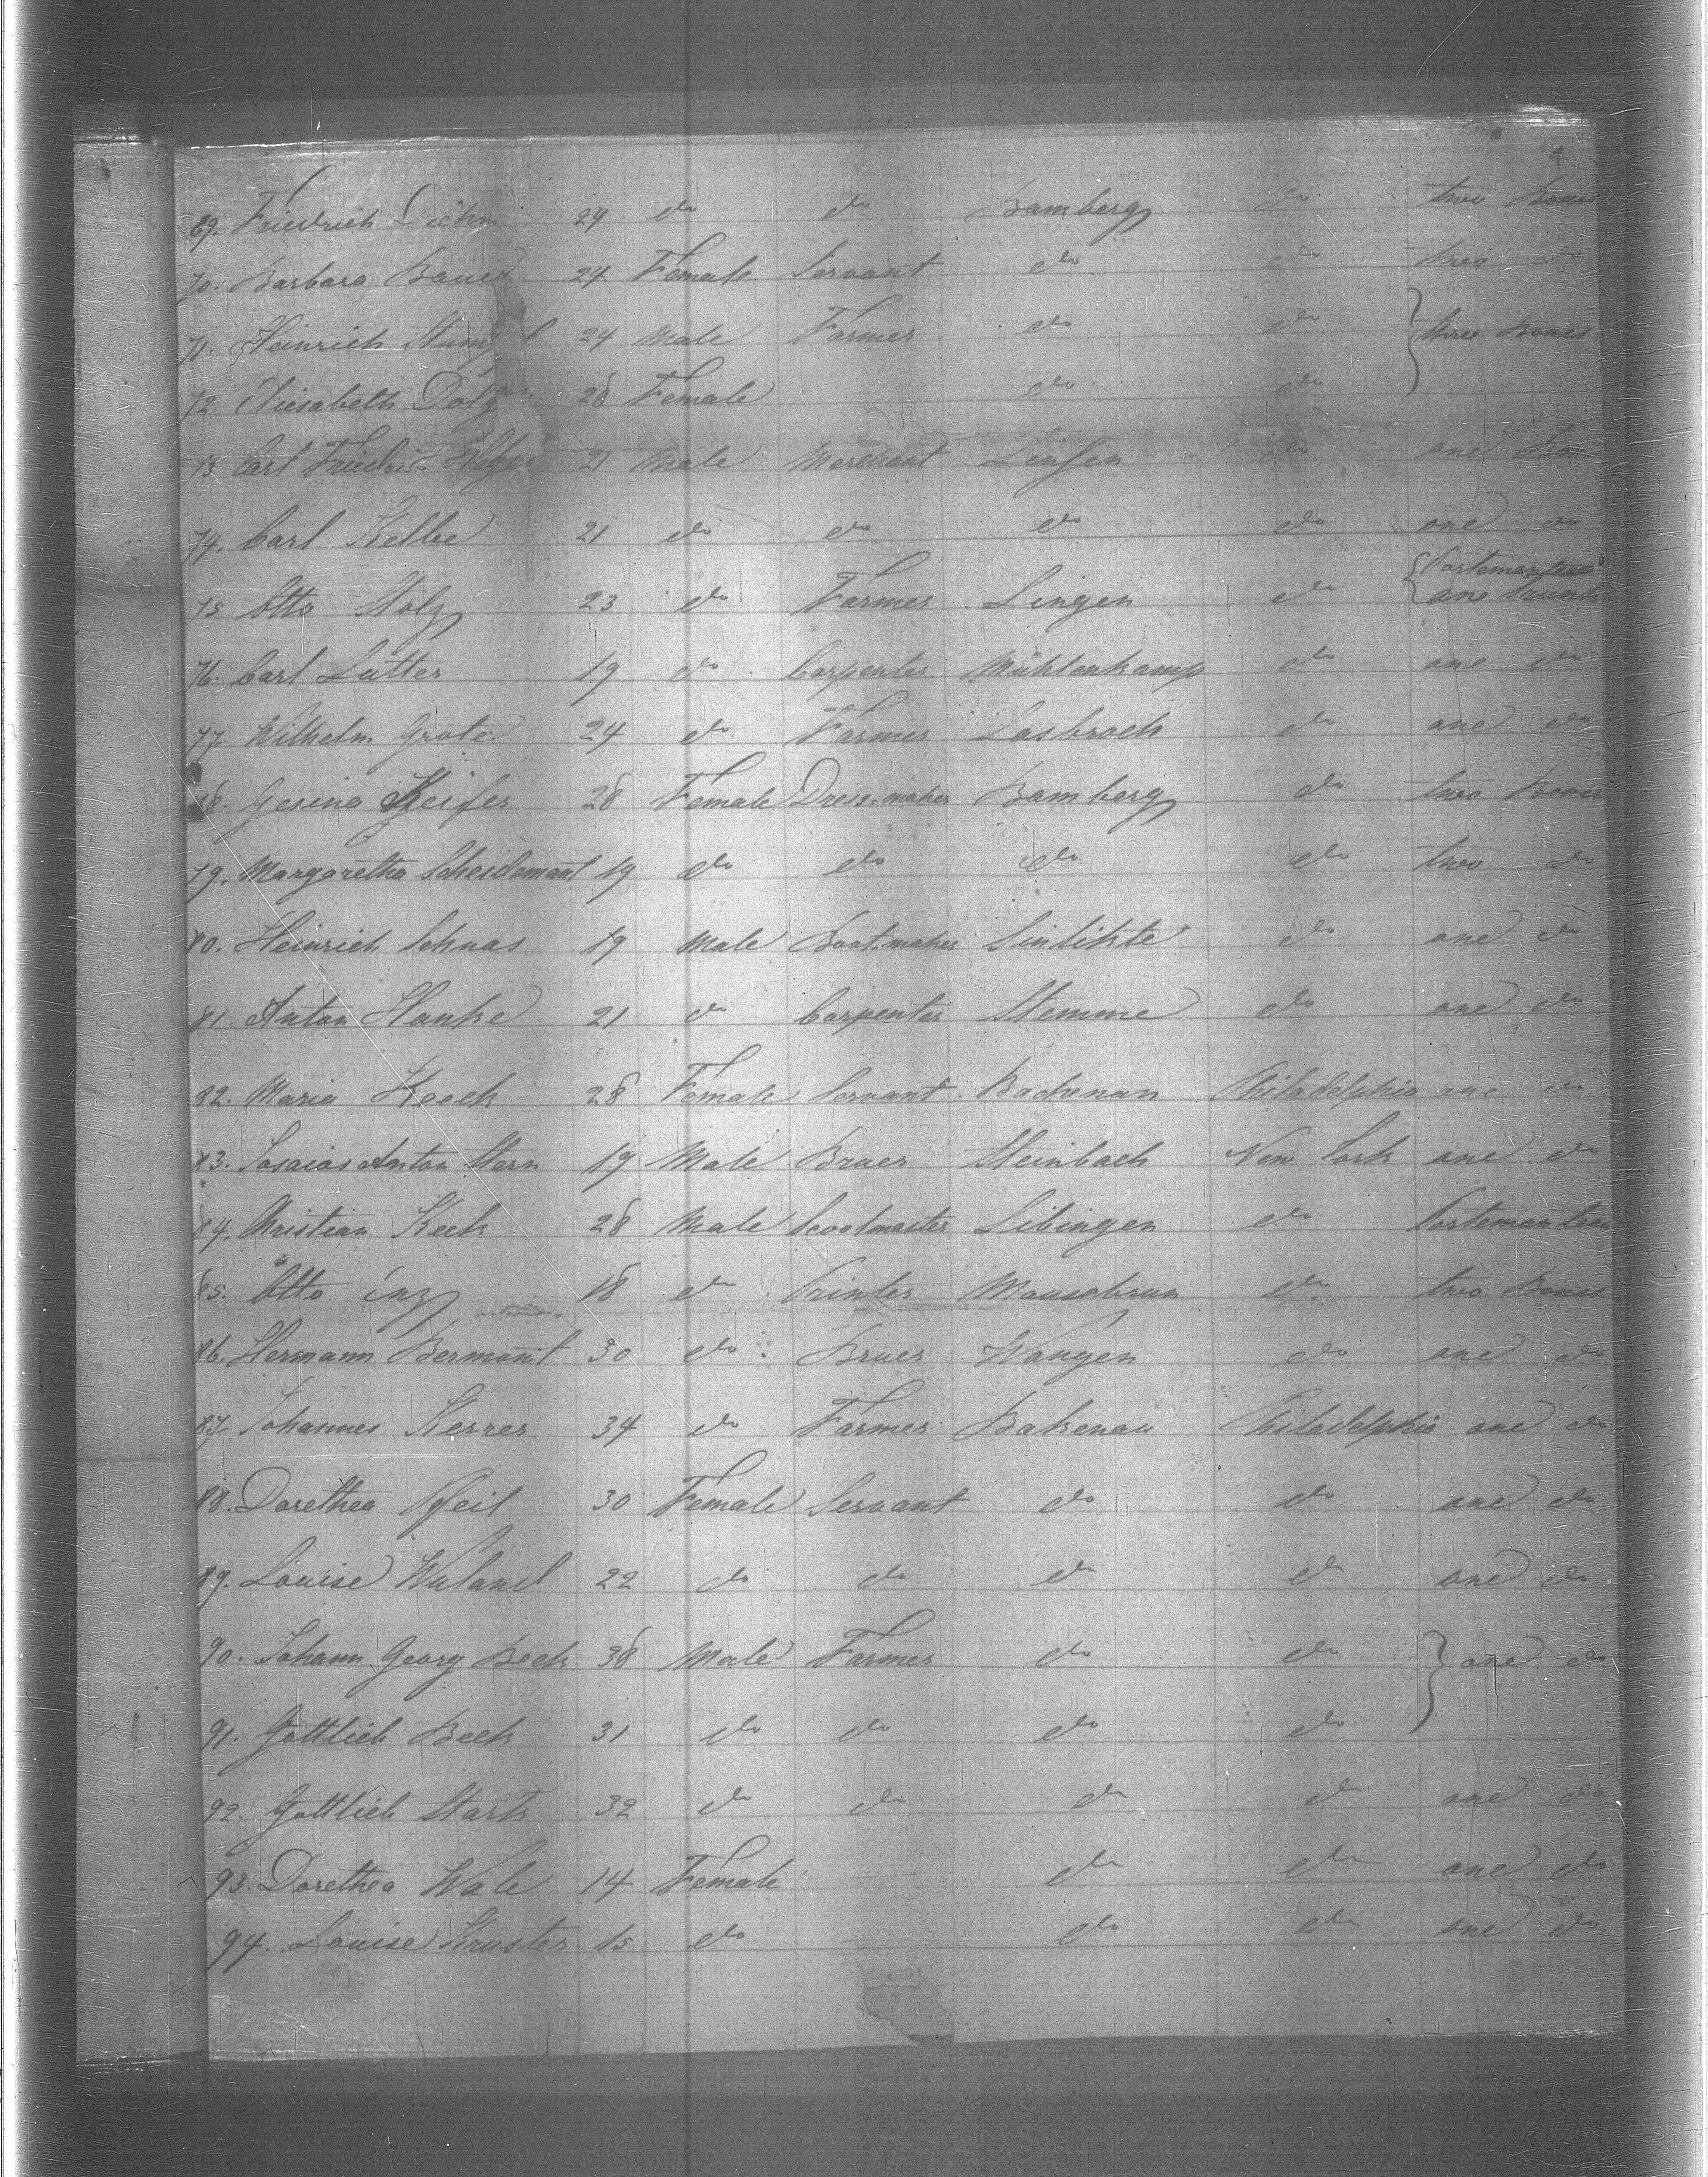 4
69. Friedrich Diehm 24 do do Bamberg do two Boxes
70. Barbara Bauer 24 Female Servant do do two do
71. Heinrich 24 Male Farmer do do } three Boxes
72. Eliesabeth 28 Female do do
73 Carl Friedrich 21 Male Merchant do one Box
74. Carl Kelbe 21 do do do do one do
75 Otto Stolz 23 do Farmer Lingen do { Portemanteau one Trunk
76. Carl Lutter 19 do Carpenter Mühlenkamp do one do
77. Wilhelm Grote 24 do Farmer Lasbroch do one do
78. Gesina Keifer 28 Female Dress-maker Bamberg do two Boxes
79. Margaretha Scheidemant 19 do do do do two do
80. Heinrich Schnas 19 Male Boot-maker Sinlikte do one do
81. Anton Hanke 21 do Carpenter Stemme do one do
82. Maria Keech 28 Female Servant Bachenan Philadelphia one do
83. Anton Stern 19 Male Bruer Steinbach New York one do
84. Christian Keck 28 Male Scoolmaster Libingen do Portemanteau
85. Otto Enz 18 do Printer Mausebrun do two Boxes
86. Hermann Bermont 30 do Bruer Wangen do one do
87. Johannes Kerrer 34 do Farmer Bakenau Philadelphia one do
88. Dorethea Pfeil 30 Female Servant do do one do
89. Louise Wuland 22 do do do do one do
90. Johann Georg Beck 38 Male Farmer do do } one do
91. Gottlieb Beck 31 do do do do
92. Gottlieb Stark 32 do do do do one do
93. Dorethea Wale 14 Female — do do one do
94. Louise Kruster 15 do — do do one do